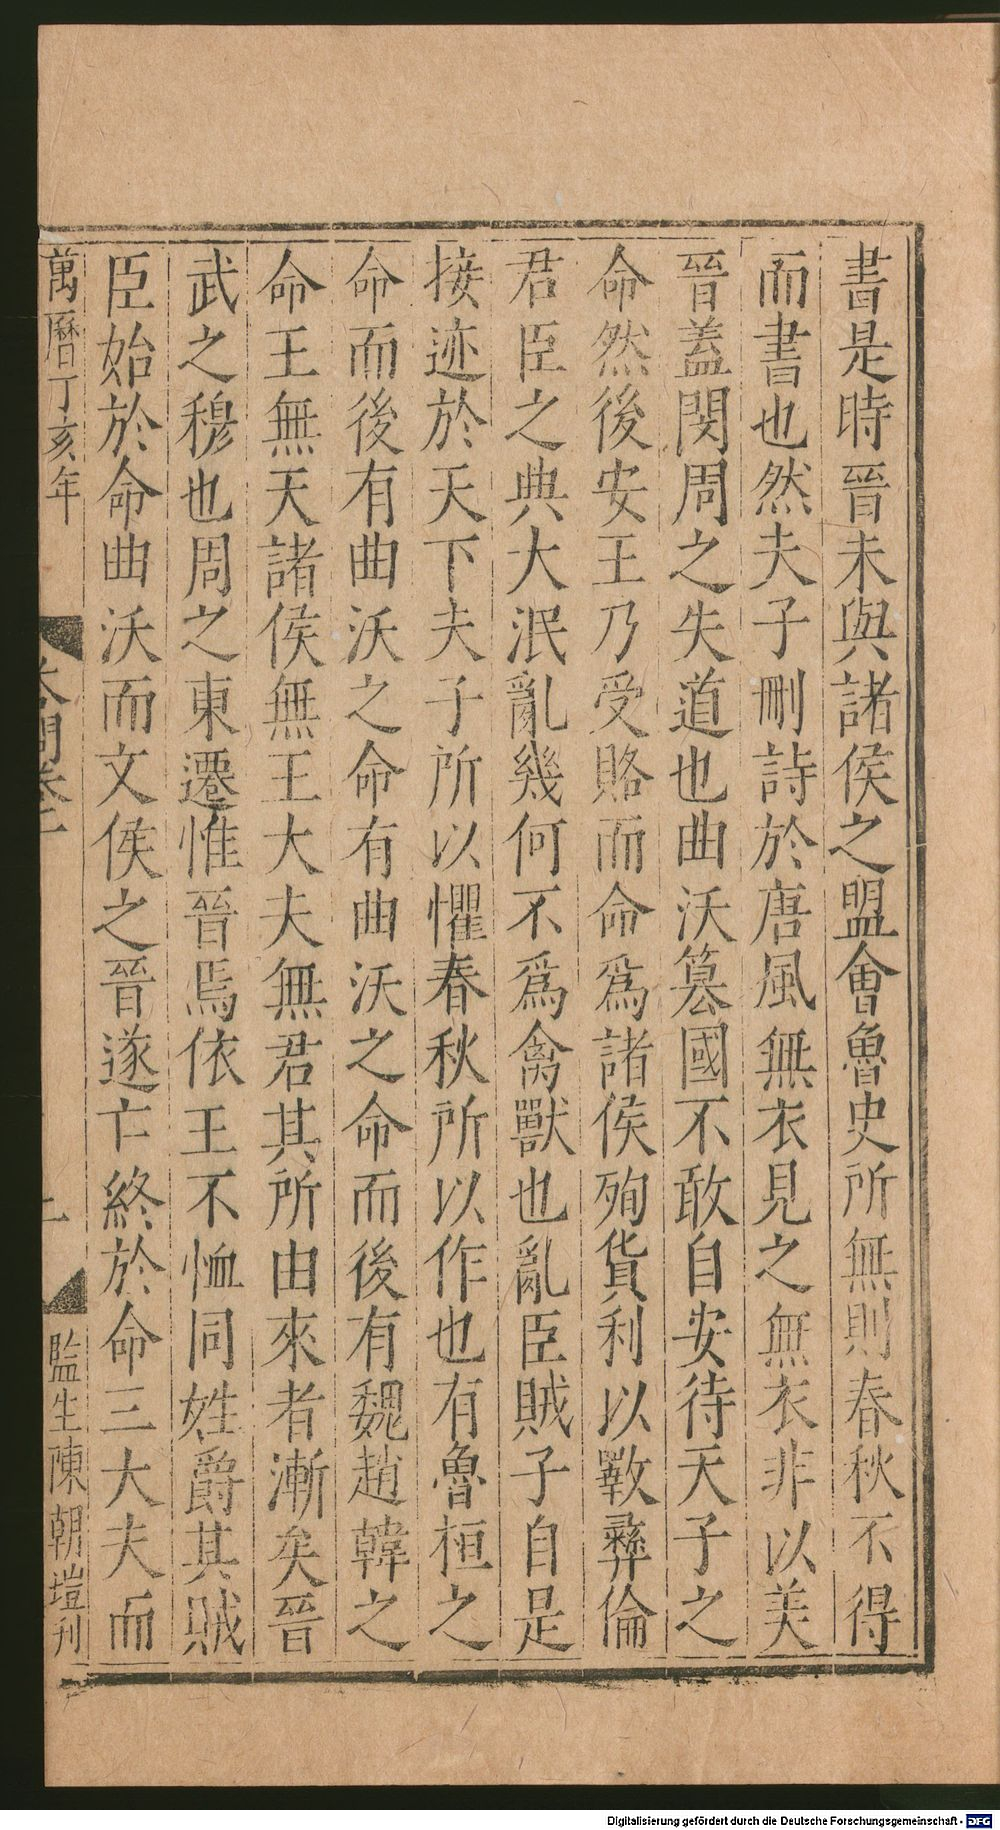 書是時晉未與諸侯之盟會魯史所無則春秋不得
而書也然夫子刪詩於唐風無衣見之無衣非以美
晉蓋閔周之失道也曲沃篡國不敢自安待天子之
命然後安王乃受賂而命為諸侯殉貨利以斁彝倫
君臣之典大泯亂幾何不爲禽獸也亂臣賊子自是
接迹於天下夫子所以懼春秋所以作也有魯桓之
命而後有曲沃之命有曲沃之命而後有魏趙韓之
命王無天諸侯無王大夫無君其所由來者漸矣晉
武之穆也周之東遷惟晉焉依王不恤同姓爵其賊
臣始於命曲沃而文侯之晉遂亡終於命三大夫而
萬曆丁亥年
監生陳朝塏刊
Digitalisierung gefördert durch die Deutsche Forschungsgemeinschaft - DFG